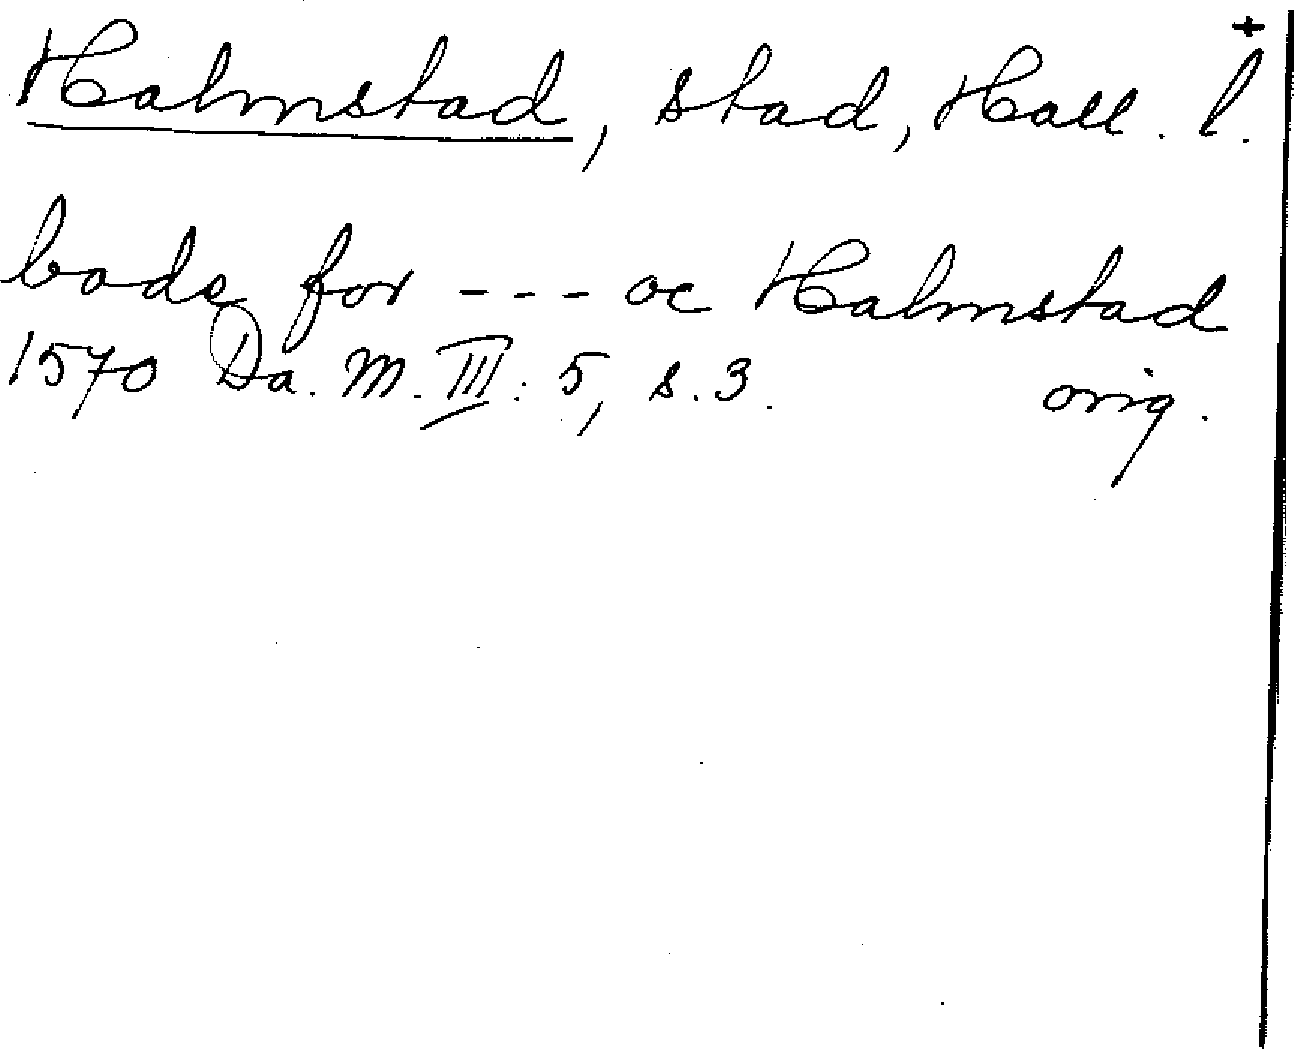 +
Halmstad, stad, Hall. l.
bode for --- oc Halmstad
1570 Da. M. III: 5, s. 3. orig.